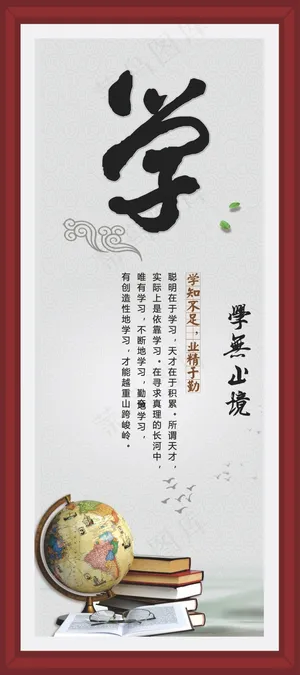 学
學無止境
学知不足，业精于勤
聪明在于学习，天才在于积累。所谓天才，
实际上是依靠学习。在寻求真理的长河中，
唯有学习，不断地学习，勤奋地学习，
有创造性地学习，才能越重山跨峻岭。